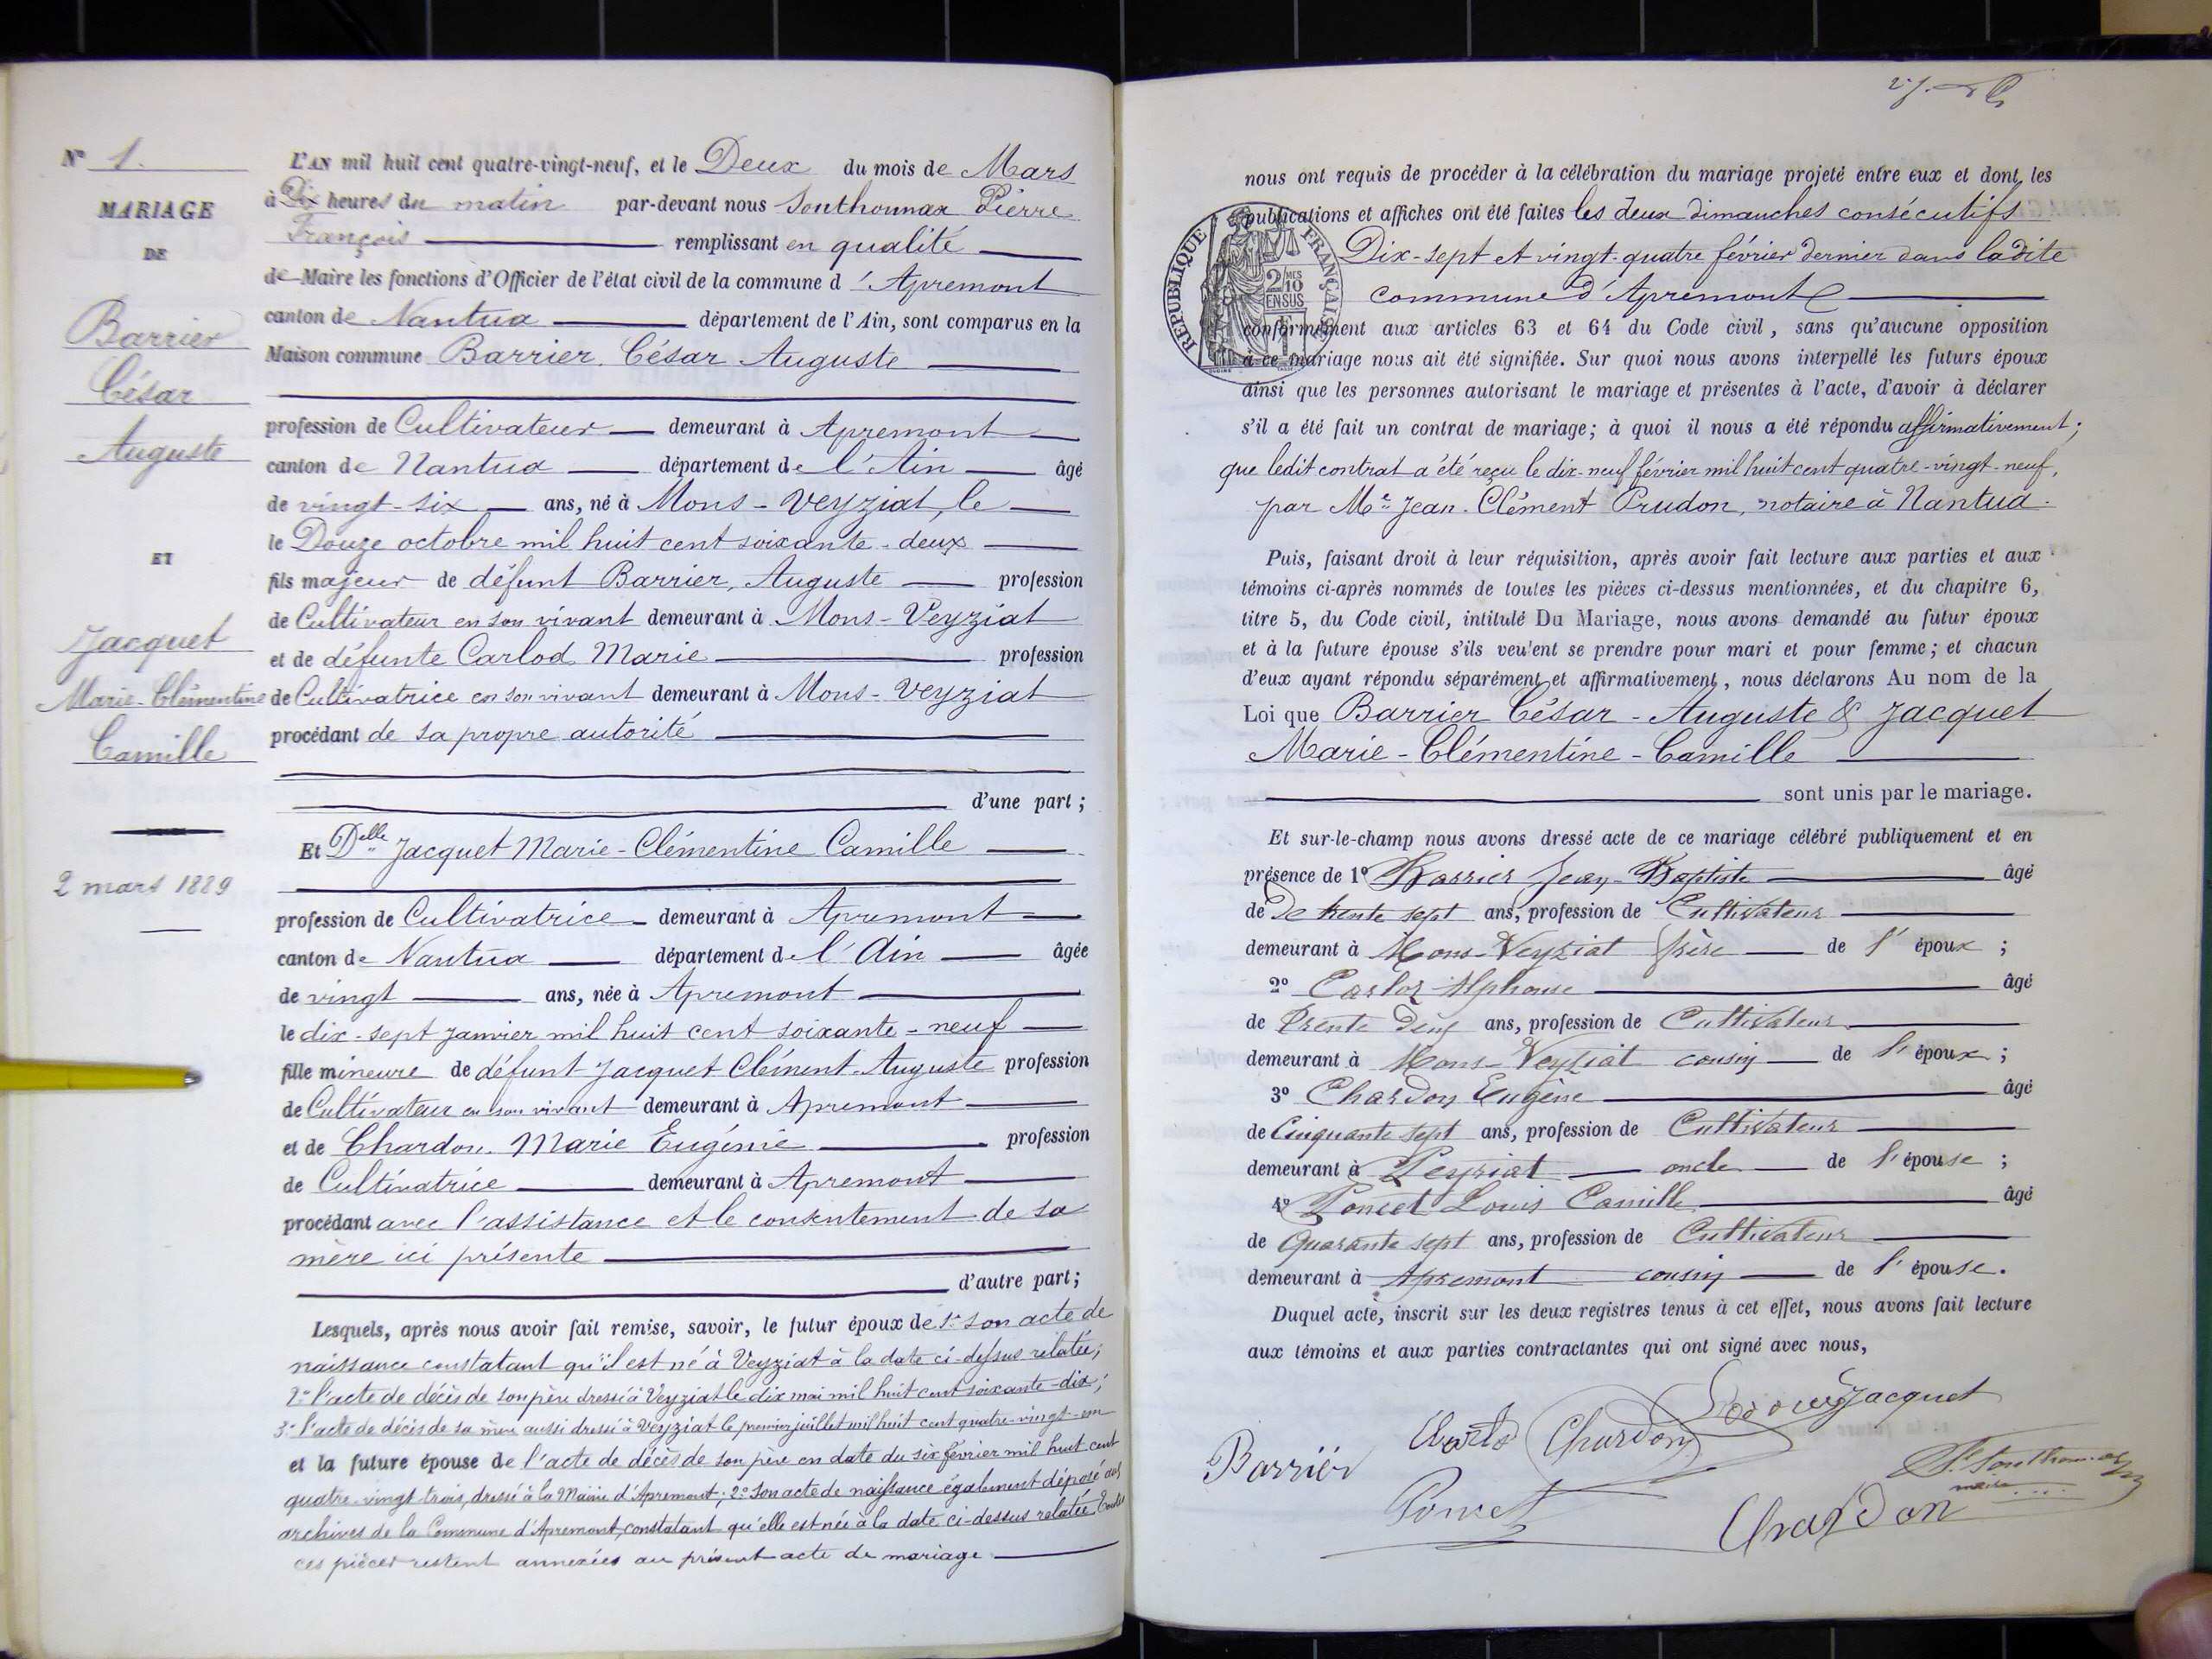 N° 1.
MARIAGE
DE
Barrier
César
Auguste
ET
Jacquet
Marie-Clémentine
Camille
2 mars 1889
L'AN mil huit cent quatre-vingt-neuf, et le Deux du mois de Mars
à Dix heures du matin par-devant nous Sonthonnax Pierre
François remplissant en qualité
de Maire les fonctions d'Officier de l'état civil de la commune d'Apremont
canton de Nantua département de l'Ain, sont comparus en la
Maison commune Barrier, César Auguste
profession de Cultivateur demeurant à Apremont
canton de Nantua département de l'Ain âgé
de vingt-six ans, né à Mons-Veyziat, le
le Douze octobre mil huit cent soixante-deux
fils majeur de défunt Barrier, Auguste profession
de Cultivateur en son vivant demeurant à Mons-Veyziat
et de défunte Carlod Marie profession
de Cultivatrice en son vivant demeurant à Mons-Veyziat
procédant de sa propre autorité
d'une part ;
Et Delle Jacquet Marie-Clémentine Camille
profession de Cultivatrice demeurant à Apremont
canton de Nantua département de l'Ain âgée
de vingt ans, née à Apremont
le dix-sept janvier mil huit cent soixante-neuf
fille mineure de défunt Jacquet Clément-Auguste profession
de Cultivateur en son vivant demeurant à Apremont
et de Chardon, Marie Eugénie profession
de Cultivatrice demeurant à Apremont
procédant avec l'assistance et le consentement de sa
mère ici présente
d'autre part ;
Lesquels, après nous avoir fait remise, savoir, le futur époux de 1° son acte de
naissance constatant qu'il est né à Veyziat à la date ci-dessus relatée;
2° l'acte de décès de son père dressé à Veyziat le dix mai mil huit cent soixante-dix;
3° l'acte de décès de sa mère aussi dressé à Veyziat le premier juillet mil huit cent quatre-vingt-un
et la future épouse de l'acte de décès de son père en date du six février mil huit cent
quatre-vingt-trois, dressé à la Mairie d'Apremont; 2° Son acte de naissance également déposé aux
archives de la Commune d'Apremont, constatant qu'elle est née à la date ci-dessus relatée. Toutes
ces pièces restent annexées au présent acte de mariage
nous ont requis de procéder à la célébration du mariage projeté entre eux et dont les
publications et affiches ont été faites les deux dimanches consécutifs
Dix-sept et vingt-quatre février dernier dans ladite
commune d'Apremont
RÉPUBLIQUE FRANÇAISE
2/10
EN SUS
conformément aux articles 63 et 64 du Code civil, sans qu'aucune opposition
à ce mariage nous ait été signifiée. Sur quoi nous avons interpellé les futurs époux
ainsi que les personnes autorisant le mariage et présentes à l'acte, d'avoir à déclarer
s'il a été fait un contrat de mariage; à quoi il nous a été répondu affirmativement;
que ledit contrat a été reçu le dix-neuf février mil huit cent quatre-vingt-neuf,
par Me Jean-Clément Prudon, notaire à Nantua.
Puis, faisant droit à leur réquisition, après avoir fait lecture aux parties et aux
témoins ci-après nommés de toutes les pièces ci-dessus mentionnées, et du chapitre 6,
titre 5, du Code civil, intitulé Du Mariage, nous avons demandé au futur époux
et à la future épouse s'ils veulent se prendre pour mari et pour femme; et chacun
d'eux ayant répondu séparément et affirmativement, nous déclarons Au nom de la
Loi que Barrier César-Auguste & Jacquet
Marie-Clémentine-Camille
sont unis par le mariage.
Et sur-le-champ nous avons dressé acte de ce mariage célébré publiquement et en
présence de 1° Barrier Jean-Baptiste âgé
de De trente sept ans, profession de Cultivateur
demeurant à Mons-Veyziat frère de l'époux ;
2° Carloz Alphonse âgé
de Trente Deux ans, profession de Cultivateur
demeurant à Mons-Veyziat cousin de l'époux ;
3° Chardon Eugène âgé
de Cinquante sept ans, profession de Cultivateur
demeurant à Peyriat oncle de l'épouse ;
4° Poncet Louis Camille âgé
de Quarante sept ans, profession de Cultivateur
demeurant à Apremont cousin de l'épouse.
Duquel acte, inscrit sur les deux registres tenus à cet effet, nous avons fait lecture
aux témoins et aux parties contractantes qui ont signé avec nous,
Jacquet
Chardon
Barrier
Poncet
Chardon
maire